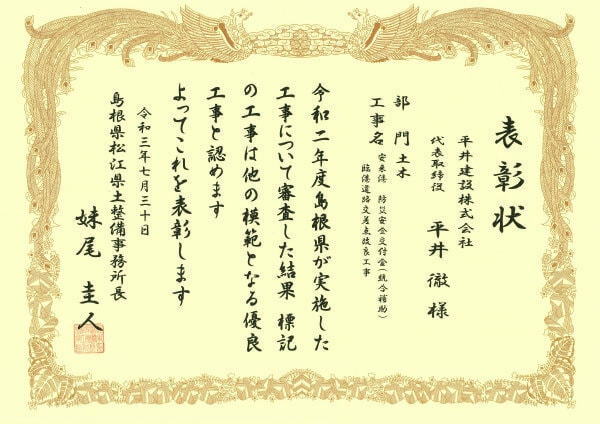 表彰状
平井建設株式会社
代表取締役 平井 徹 様
部 門 土木
工事名 安来港 防災安全交付金(統合補助)
臨港道路交差点改良工事
令和二年度島根県が実施した
工事について審査した結果 標記
の工事は他の模範となる優良
工事と認めます
よってこれを表彰します
令和三年七月三十日
島根県松江県土整備事務所長
妹尾 圭人